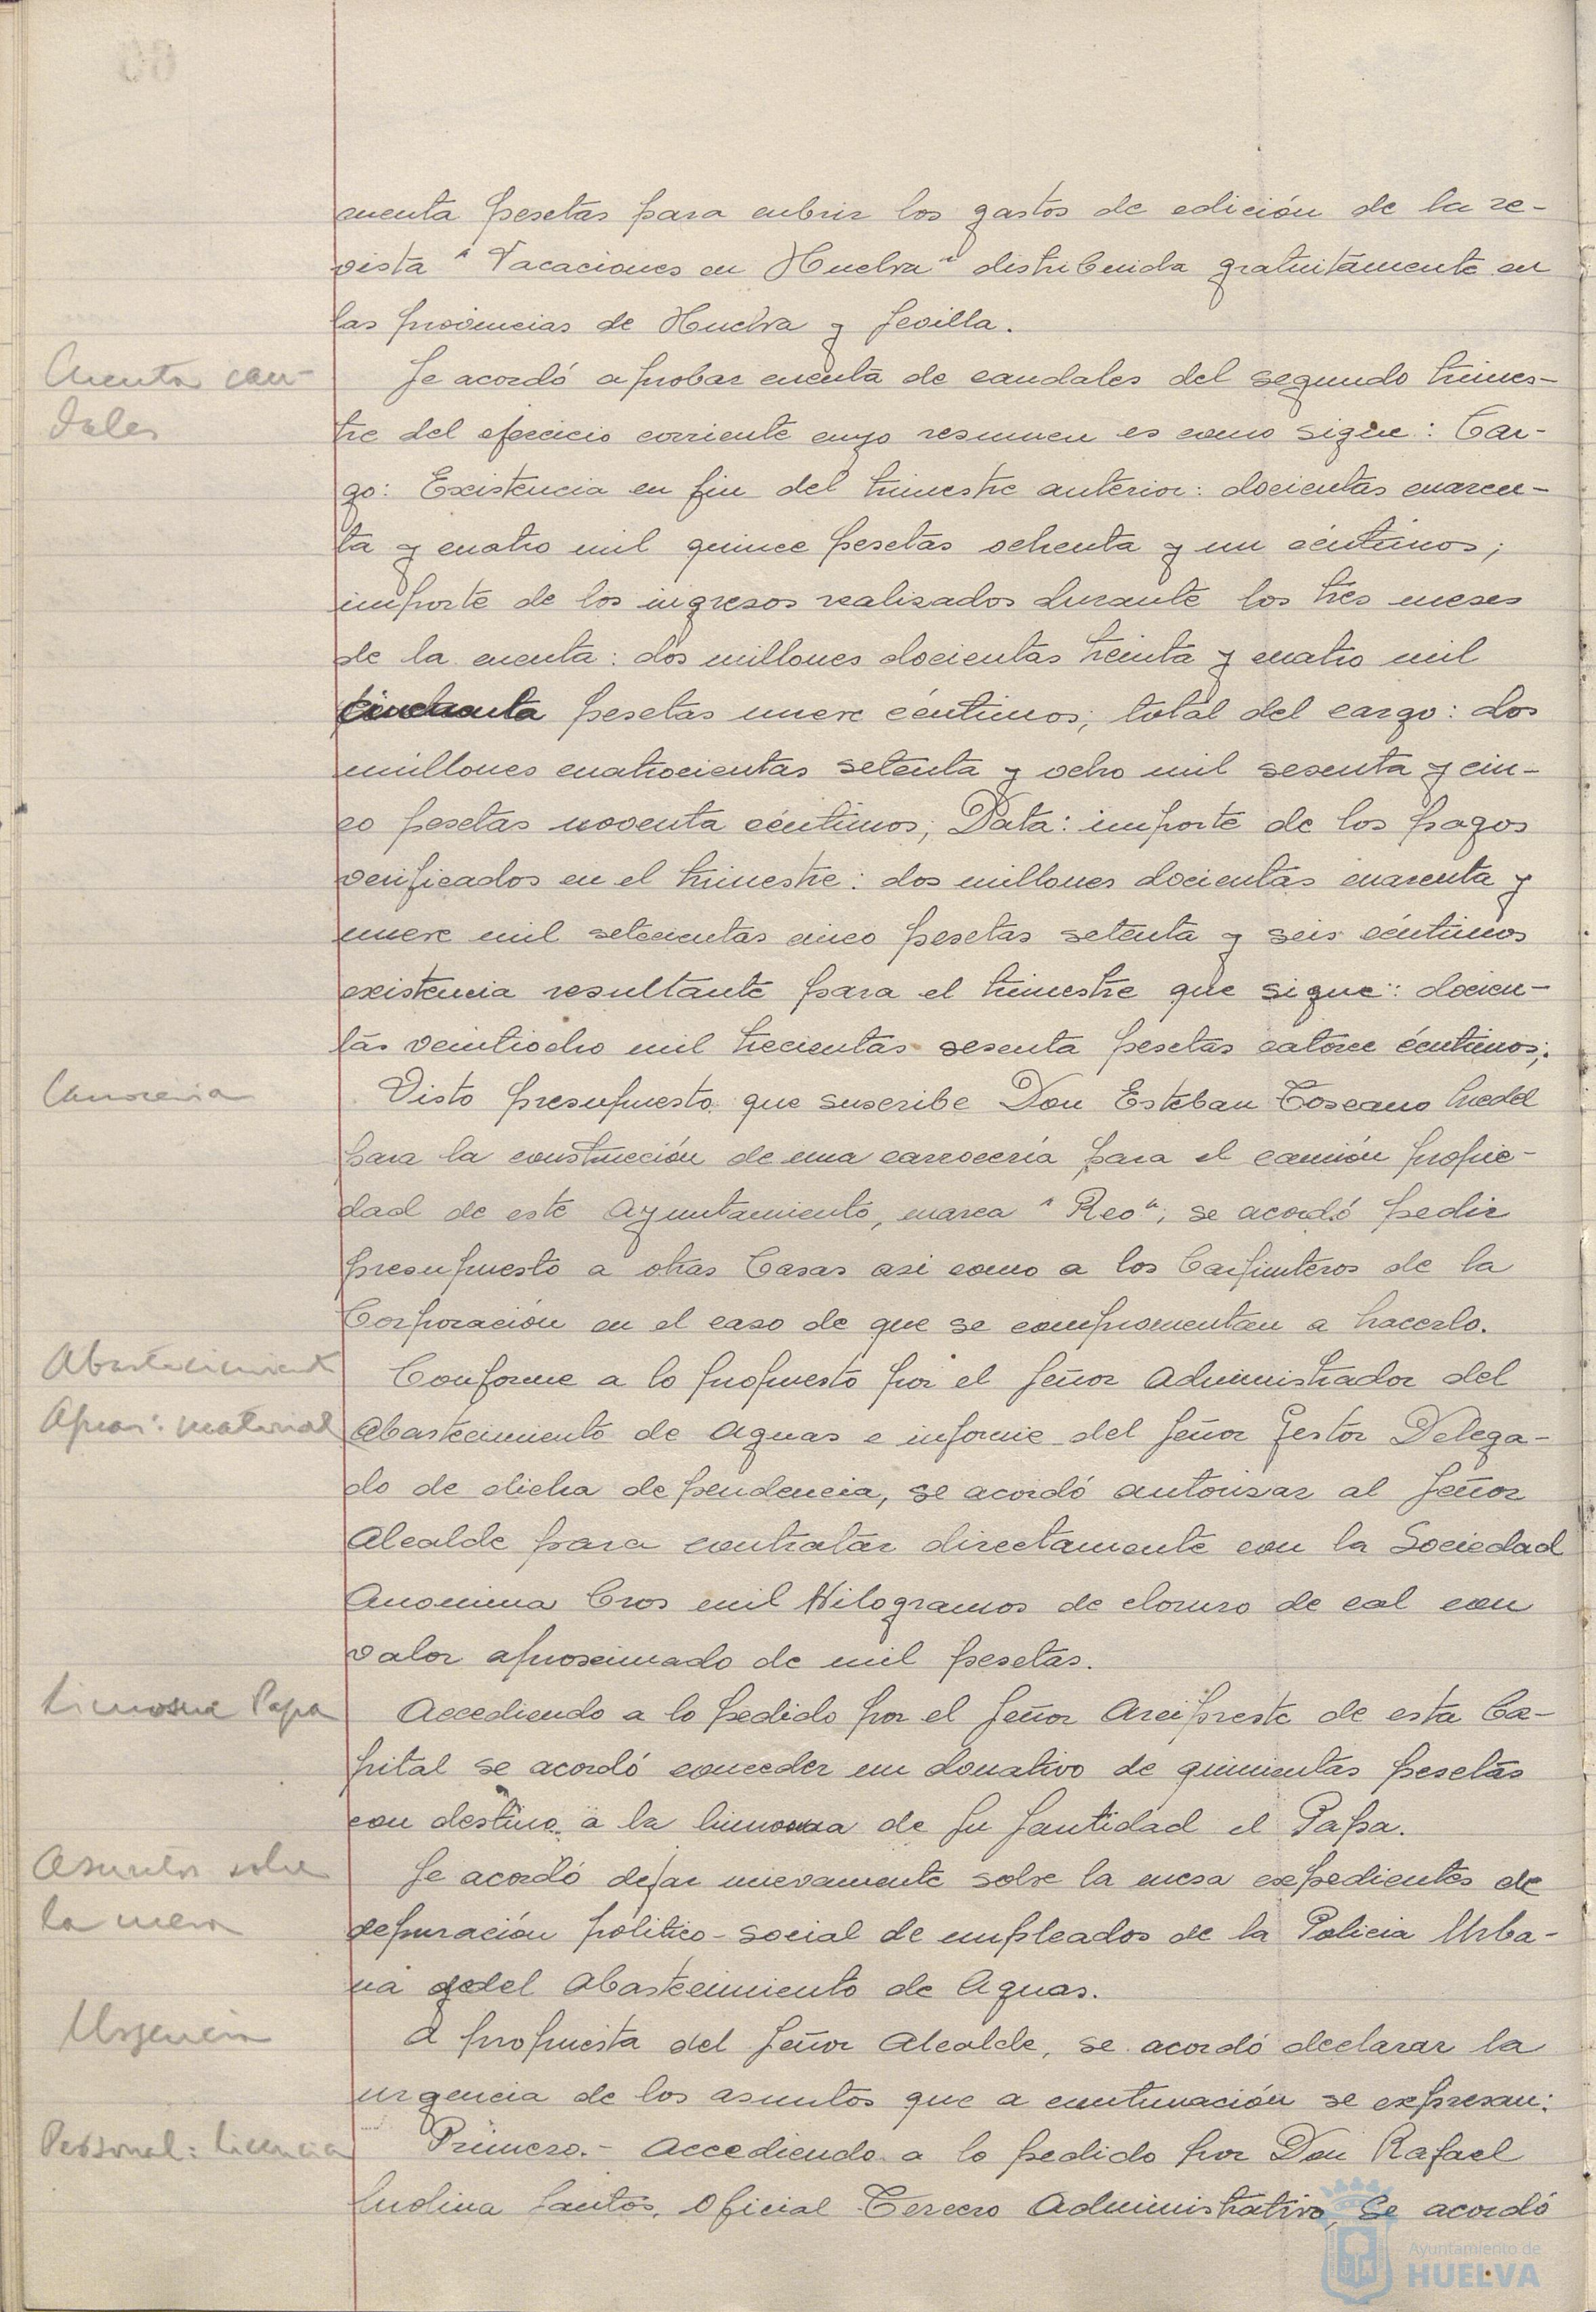 cuenta pesetas para cubrir los gastos de edición de la re-
vista "Vacaciones en Huelva" distribuida gratuitamente en
las provincias de Huelva y Sevilla.
Cuenta cau-
dales
Se acordó aprobar cuenta de caudales del segundo trimes-
tre del ejercicio corriente cuyo resumen es como sigue: Car-
go: Existencia en fin del trimestre anterior: docientas cuaren-
ta y cuatro mil quince pesetas ochenta y un céntimos;
importe de los ingresos realizados durante los tres meses
de la cuenta: dos millones docientas treinta y cuatro mil
cincuenta pesetas nueve céntimos; total del cargo: dos
millones cuatrocientas setenta y ocho mil sesenta y cin-
co pesetas noventa céntimos; Data: importe de los pagos
verificados en el trimestre: dos millones docientas cuarenta y
nueve mil setecientas cinco pesetas setenta y seis céntimos
existencia resultante para el trimestre que sigue: docien-
tas veintiocho mil trecientas sesenta pesetas catorce céntimos;
Carrocería
Visto presupuesto que suscribe Don Esteban Toscano
para la construcción de una carrocería para el camión propie-
dad de este Ayuntamiento, marca "Reo", se acordó pedir
presupuesto a otras Casas asi como a los Carpinteros de la
Corporación en el caso de que se compromentan a hacerlo.
Abastecimiento
Aguas: material
Conforme a lo propuesto por el Señor Administrador del
Abastecimiento de Aguas e informe del Señor Gestor Delega-
do de dicha dependencia, se acordó autorizar al Señor
Alcalde para contratar directamente con la Sociedad
Anonima Cros mil Kilogramos de cloruro de cal con
valor aproximado de mil pesetas.
Limosna Papa
Accediendo a lo pedido por el Señor Arcipreste de esta Ca-
pital se acordó conceder un donativo de quinientas pesetas
con destino a la limosna de Su Santidad el Papa.
Asuntos sobre
la mesa
Se acordó dejar nuevamente sobre la mesa expedientes de
depuración politico-social de empleados de la Policia Urba-
na y del Abastecimiento de Aguas.
Urgencia
A propuesta del Señor Alcalde, se acordó declarar la
urgencia de los asuntos que a continuación se expresan:
Personal: licencia
Primero.- Accediendo a lo pedido por Don Rafael
Santos, Oficial Tercero Administrativo, se acordó
Ayuntamiento de
HUELVA